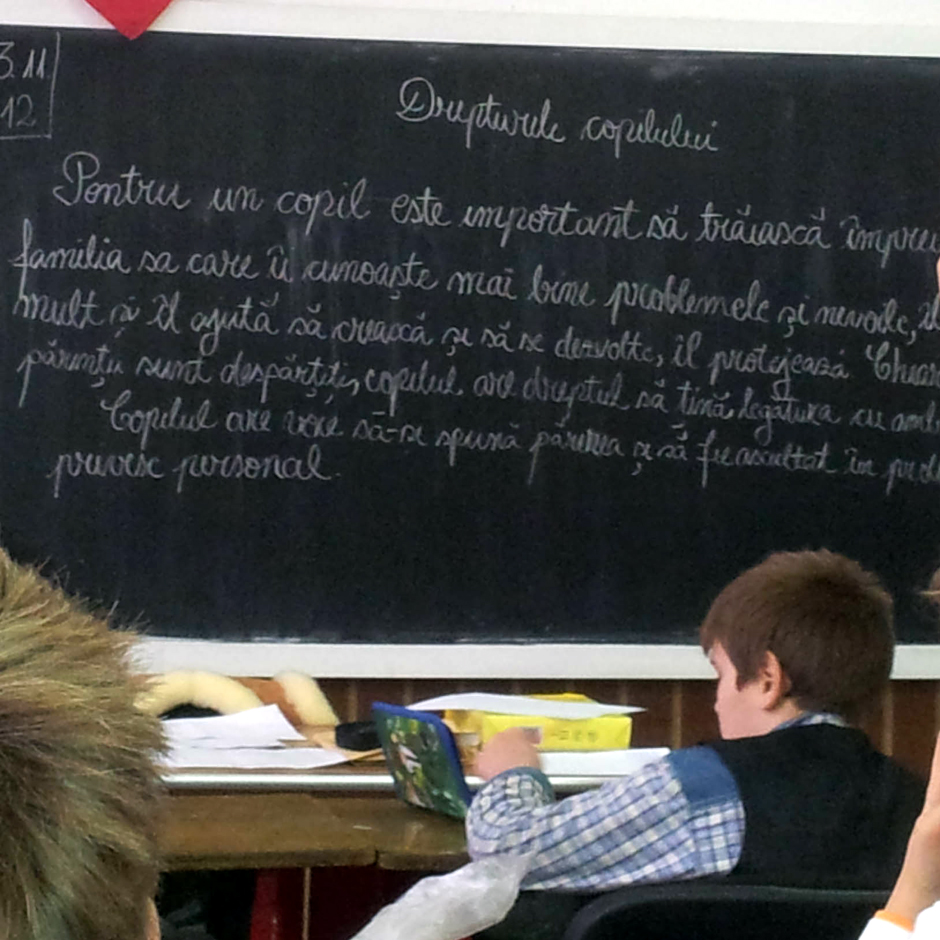 3.11
12
Drepturile copilului
Pentru un copil este important să trăiască împreu
familia sa care îi cunoaște mai bine problemele și nevoile, îl
mult și îl ajută să crească și să se dezvolte, îl protejează. Chiar
părinții sunt despărțiți, copilul are dreptul să țină legătura cu amb
Copilul are voie să-și spună părerea și să fie ascultat în prob
privesc personal.